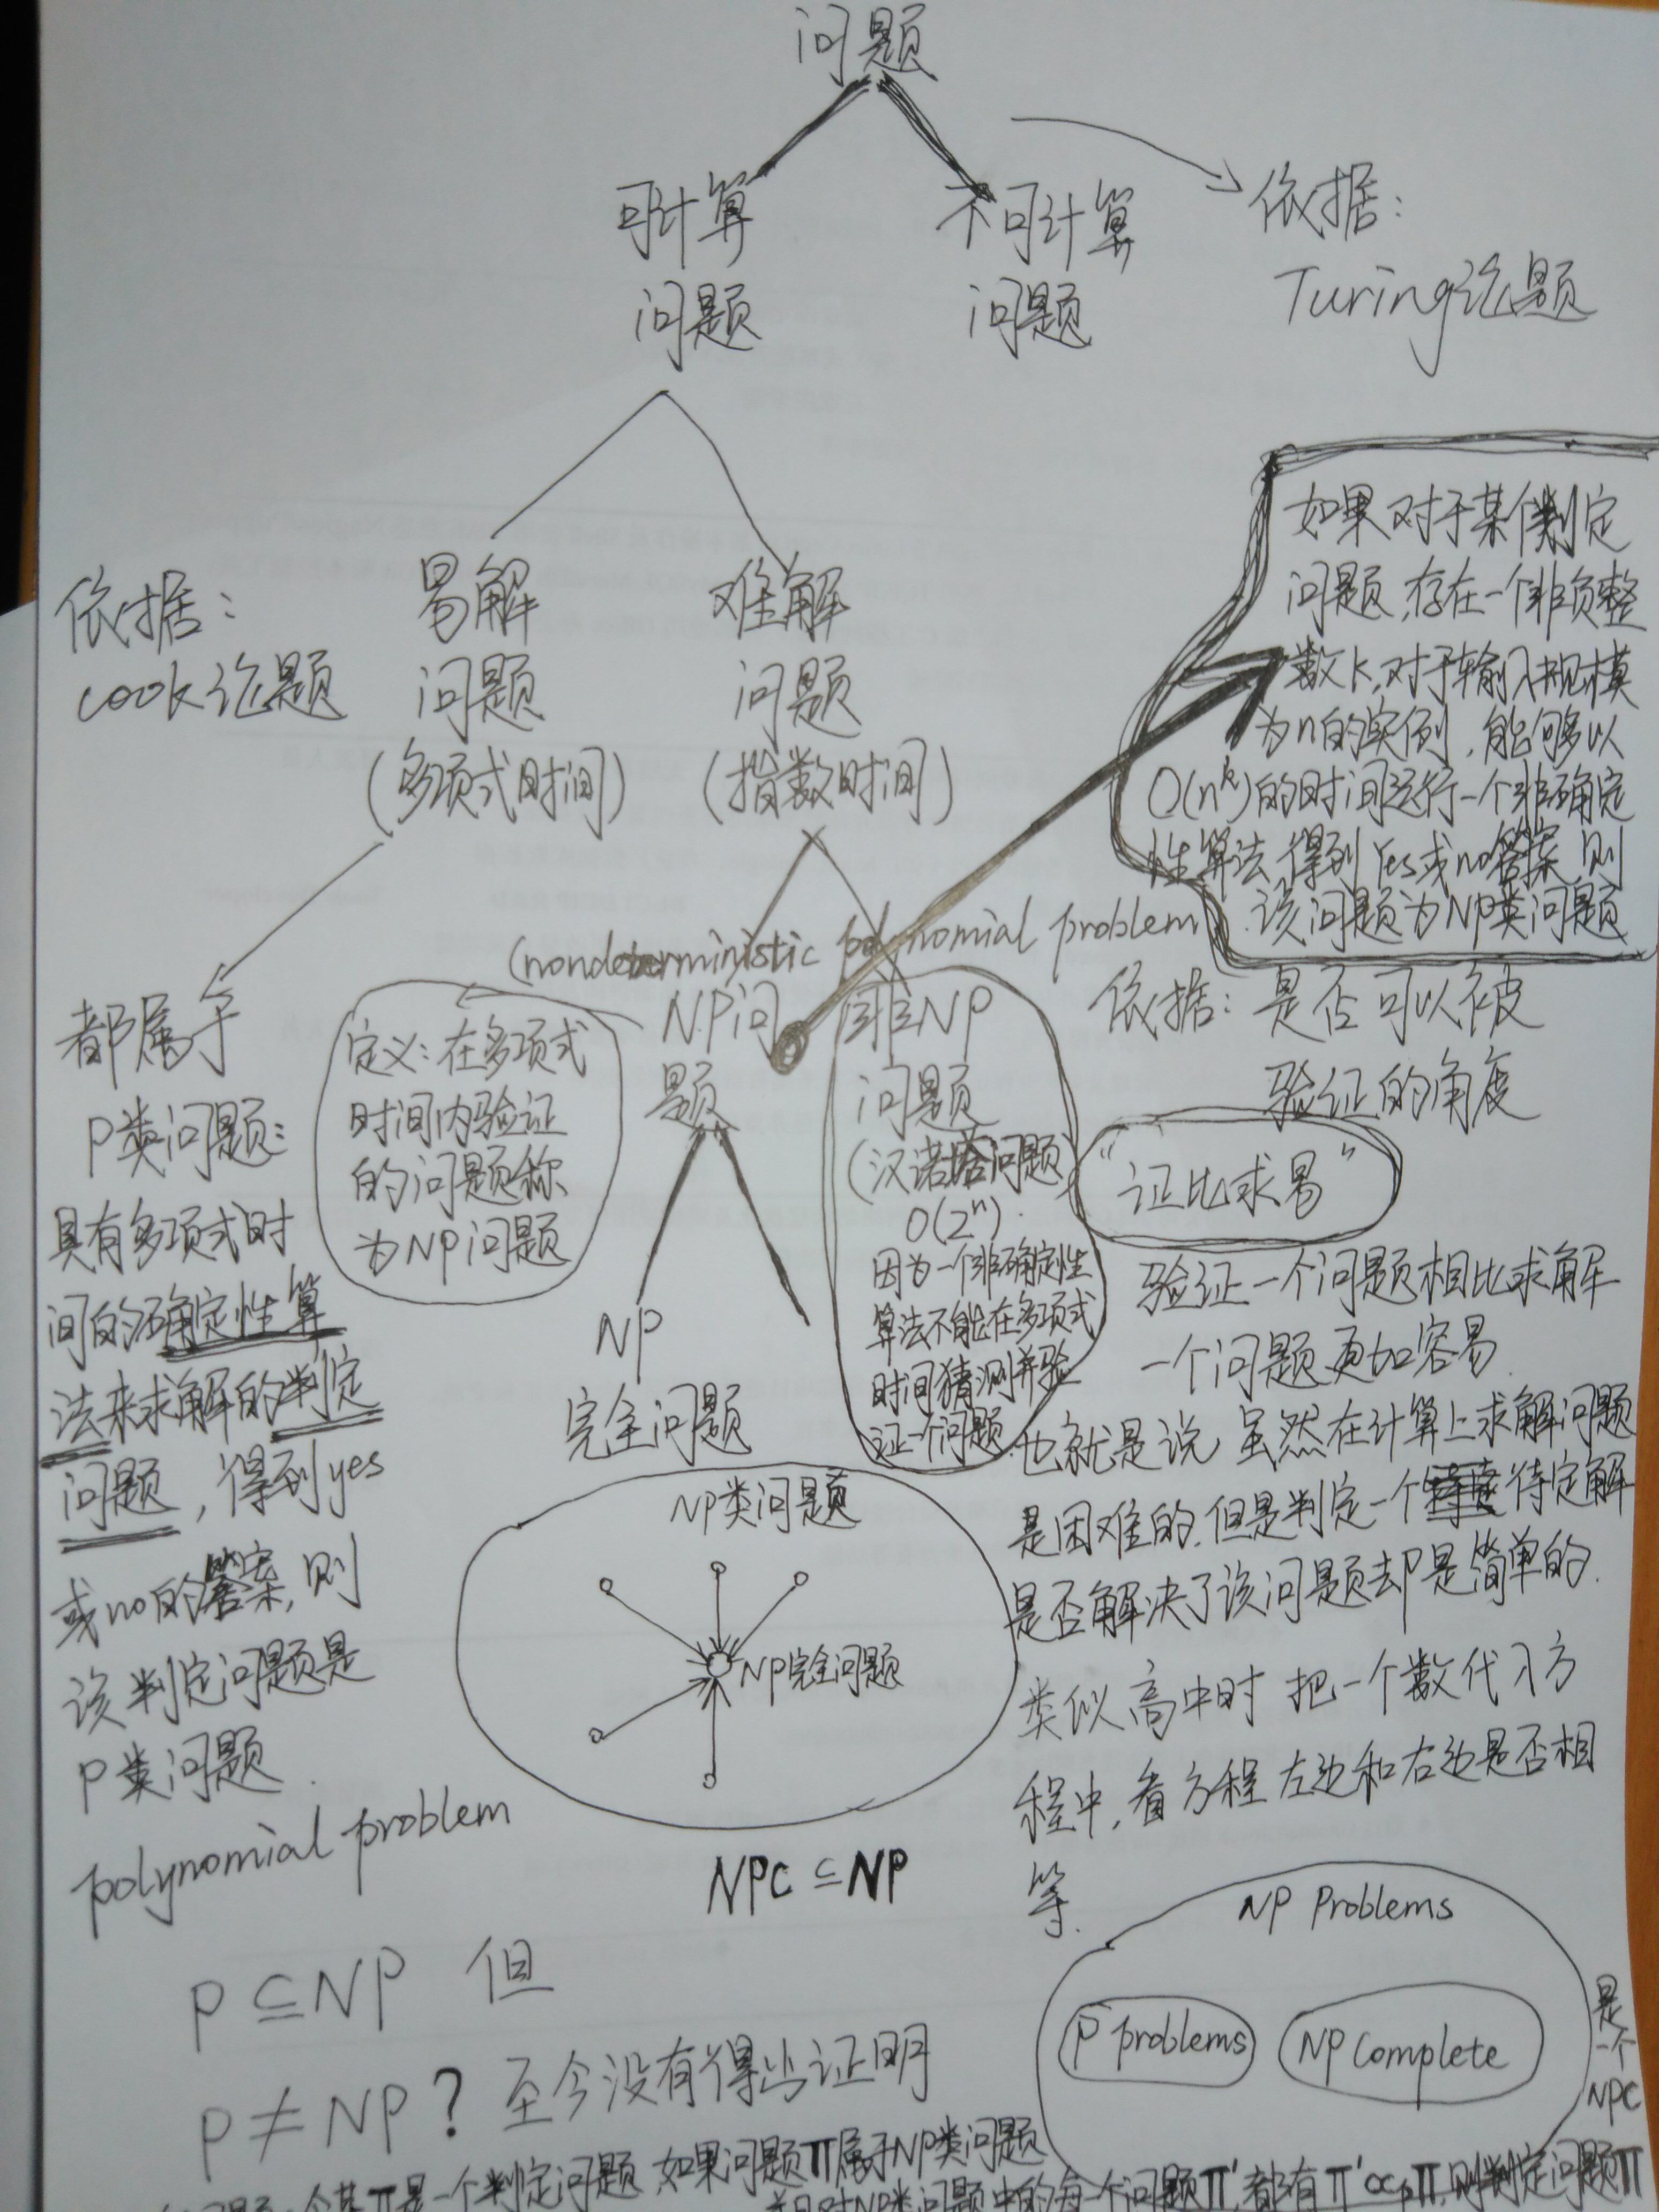 问题
可计算
问题
不可计算
问题
依据：
Turing论题
依据：
cook论题
易解
问题
(多项式时间)
难解
问题
(指数时间)
如果对于某个判定
问题,存在一个非负整
数k,对于输入规模
为n的实例,能够以
O(n^k)的时间运行一个非确定
性算法,得到Yes或no答案,则
该问题为NP类问题
(nondeterministic polynomial problem)
都属于
P类问题:
具有多项式时
间的确定性算
法来求解的判定
问题,得到yes
或no的答案,则
该判定问题是
P类问题.
polynomial problem
定义:在多项式
时间内验证
的问题称
为NP问题
NP问
题
非NP
问题
(汉诺塔问题)
O(2^n).
因为一个非确定性
算法不能在多项式
时间猜测并验
证一个问题
依据:是否可以被
验证的角度
"证比求易"
验证一个问题相比求解
一个问题更加容易.
也就是说,虽然在计算上求解问题
是困难的,但是判定一个待定解
是否解决了该问题却是简单的.
类似高中时 把一个数代入方
程中,看方程左边和右边是否相
等.
NP
完全问题
NP类问题
NP完全问题
NPC ⊆ NP
P ⊆ NP 但
P ≠ NP ? 至今没有得出证明
NP Problems
P problems
NP Complete
是一个NPC
π是一个判定问题,如果问题π属于NP类问题
并且对NP类问题中的每一个问题π',都有π'∝pπ,则判定问题π